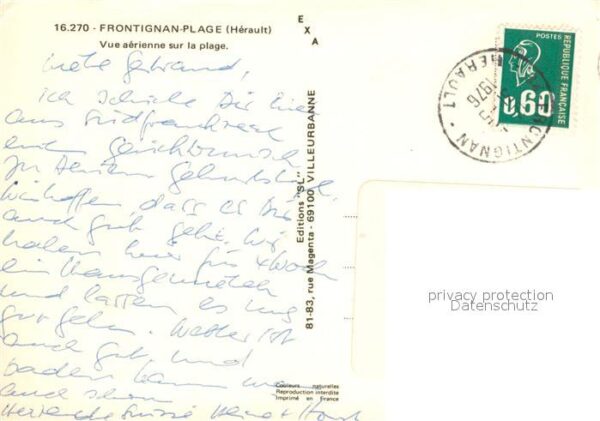 16.270 - FRONTIGNAN-PLAGE (Hérault)
Vue aérienne sur la plage.
EXA
ich schicke Dir hier
aus Südfrankreich
einen Glückwunsch
zu Deinem Geburtstag.
Wir hoffen, dass es Dir
auch gut geht. Wir
haben hier für 4 Wochen
ein Haus gemietet
und lassen es uns
gut gehen. Wetter ist
auch gut, und
baden kann man
auch schon
Herzliche Grüsse
Editions "SL"
81-83, rue Magenta - 69100 VILLEURBANNE
Couleurs naturelles
Reproduction interdite
Imprimé en France
POSTES
REPUBLIQUE FRANÇAISE
0,60
FRONTIGNAN
HERAULT
1976
privacy protection
Datenschutz